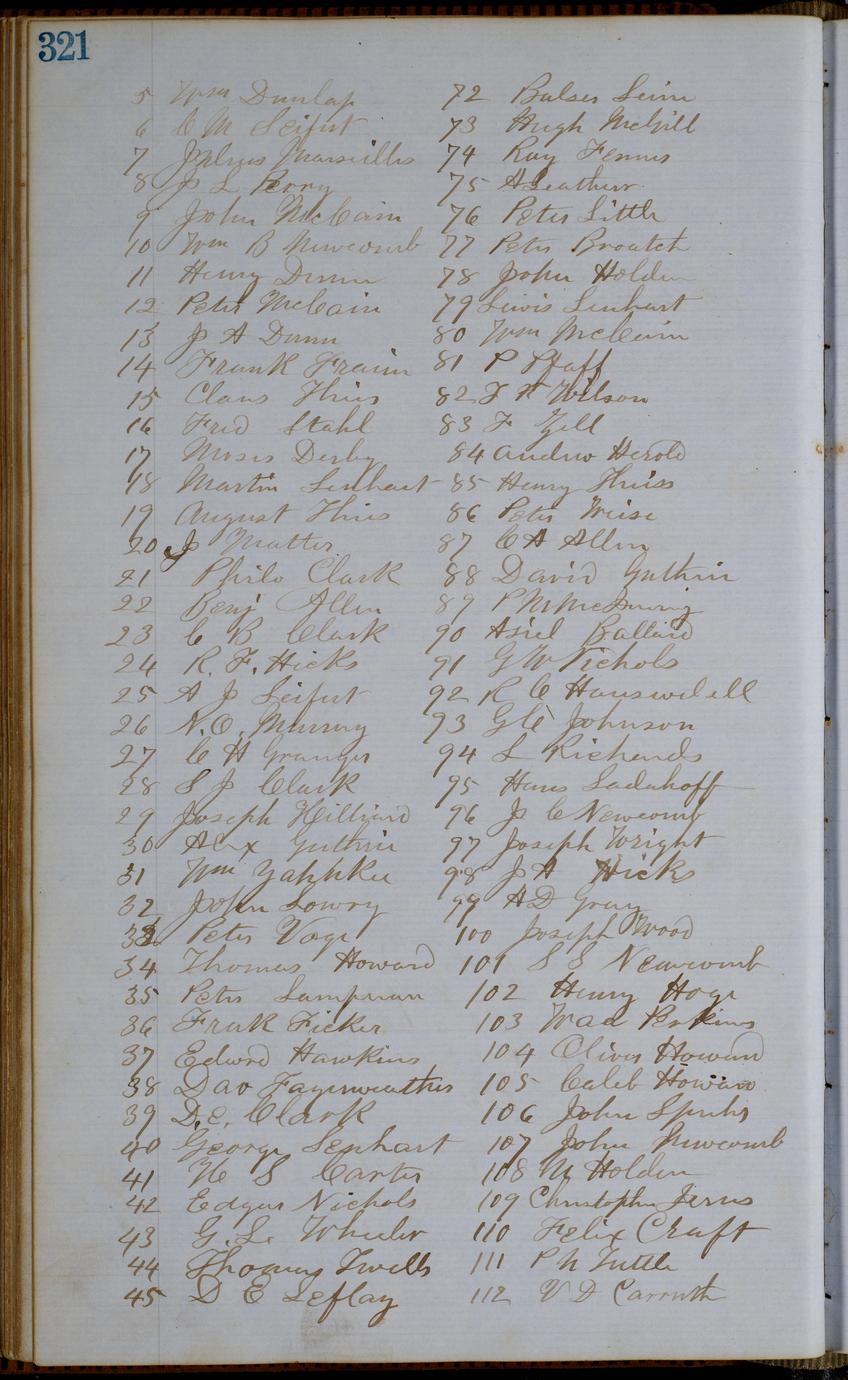 321
5 Wm Dunlap
6 C M Seifert
7 Julius Marseilles
8 J L Perry
9 John McCain
10 Wm B Newcomb
11 Henry Dunn
12 Peter McCain
13 J A Dunn
14 Frank Fraim
15 Claus Thies
16 Fred Stahl
17 Moses Derby
18 Martin Senhart
19 August Thies
20 J Matter
21 Philo Clark
22 Benj Allen
23 C B Clark
24 R. F. Hicks
25 A J Seifert
26 N. O. Murray
27 C H Granger
28 S J Clark
29 Joseph Hilliard
30 Alex Guthrie
31 Wm
32 John Lowry
33 Peter Voge
34 Thomas Howard
35 Peter Lampman
36 Frank Ficker
37 Edward Hawkins
38 Dav Fayerweather
39 D. E. Clark
40 George Senhart
41 H S Carter
42 Edgar Nichols
43 G. L. Wheeler
44 Thomas Twells
45 D E Leflay
72 Balser Seim
73 Hugh McGill
74 Ray Fennes
75 A Leather
76 Peter Little
77 Peter Broatch
78 John Holden
79 Lewis Senhart
80 Wm McCain
81 P Pfaff
82 F F Wilson
83 F Zell
84 Andrew Herold
85 Henry Thiess
86 Peter Weise
87 C A Allen
88 David Guthrie
89 P M
90 Asiel Ballard
91 G W Nichols
92 R C
93 G C Johnson
94 L Richards
95 Hans Ladahoff
96 J C Newcomb
97 Joseph Wright
98 J A Hicks
99 A D Gray
100 Joseph Wood
101 S S Newcomb
102 Henry Hoge
103 Perkins
104 Oliver Howard
105 Caleb Howard
106 John Spuhs
107 John Newcomb
108 M Holden
109 Christopher Jerns
110 Felix Craft
111 P N Tuttle
112 V D Carruth